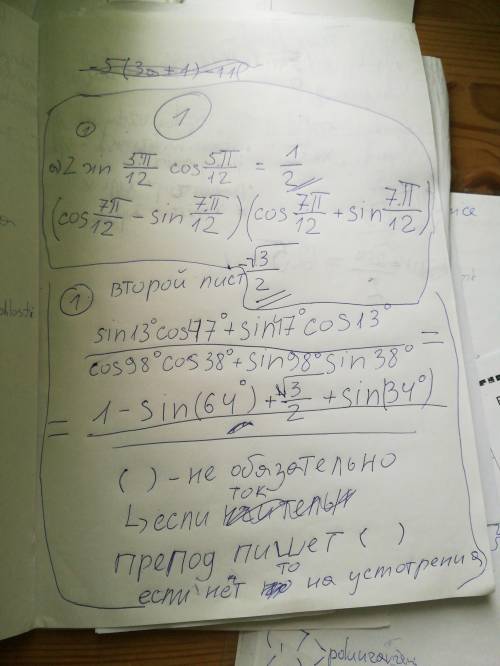 -5(3a+1)-11(
1
1
a) 2 sin 5π/12 cos 5π/12 = 1/2
(cos 7π/12 - sin 7π/12)(cos 7π/12 + sin 7π/12)
-√3/2
1 второй лист
sin13°cos47°+sin47°cos13° / cos98°cos38°+sin98°sin38° =
= 1-sin(64°)+√3/2+sin(34°)
( ) - не обязательно
ток
↳если
препод пишет ( )
то
если нет на устотрения